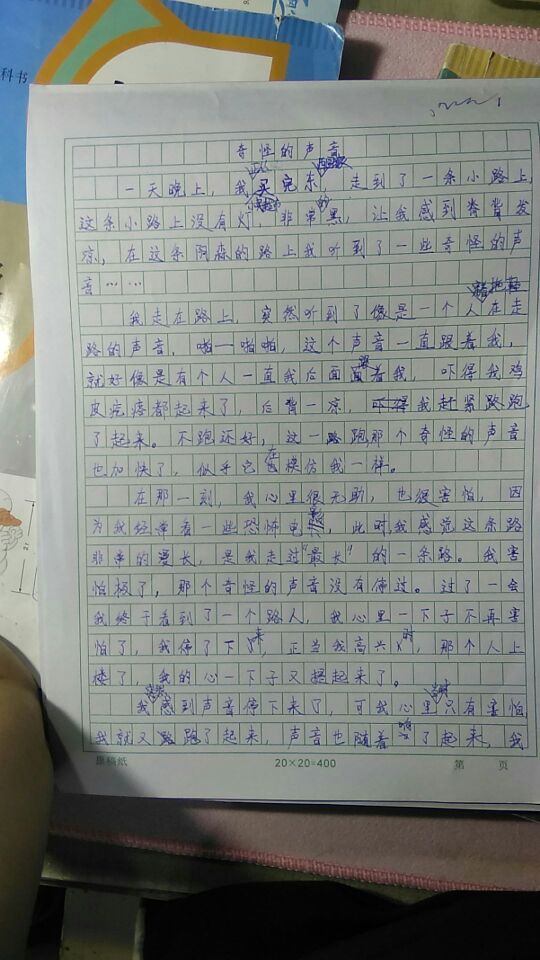 科书
奇怪的声音
一天晚上，我买完东，走到了一条小路上，
这条小路上没有灯，非常黑，让我感到脊背发
凉，在这条阴森的路上我听到了一些奇怪的声
音……
我走在路上，突然听到了像是一个人在走
路的声音，啪——啪啪，这个声音一直跟着我，
就好像是有个人一直我后面跟着我，吓得我鸡
皮疙瘩都起来了，后背一凉，我赶紧跑
了起来。不跑还好，这一跑那个奇怪的声音
也加快了，似乎它在模仿我一样。
在那一刻，我心里很无助，也很害怕，因
为我经常看一些恐怖电影，此时我感觉这条路
非常的漫长，是我走过"最长"的一条路。我害
怕极了，那个奇怪的声音没有停过。过了一会
我终于看到了一个路人，我心里一下子不再害
怕了，我停了下来，正当我高兴时，那个人上
楼了，我的心一下子又提起来了。
我感到声音停下来了，可我心里只有害怕，
我就又跑了起来，声音也随着响了起来，我
原稿纸
20×20=400
第 页